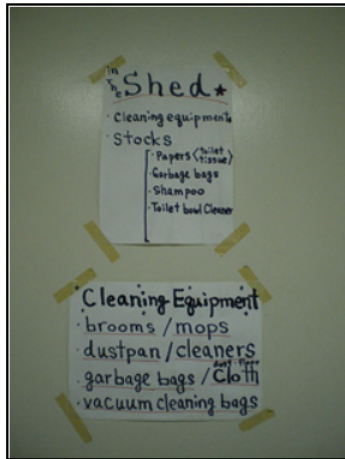 in the Shed★
· Cleaning equipments
· Stocks
· Papers <toilet tissue>
· Garbage bags
· Shampoo
· Toilet bowl Cleaner
Cleaning Equipment
· brooms / mops
· dustpan / cleaners
· garbage bags / Cloth
· vacuum cleaning bags